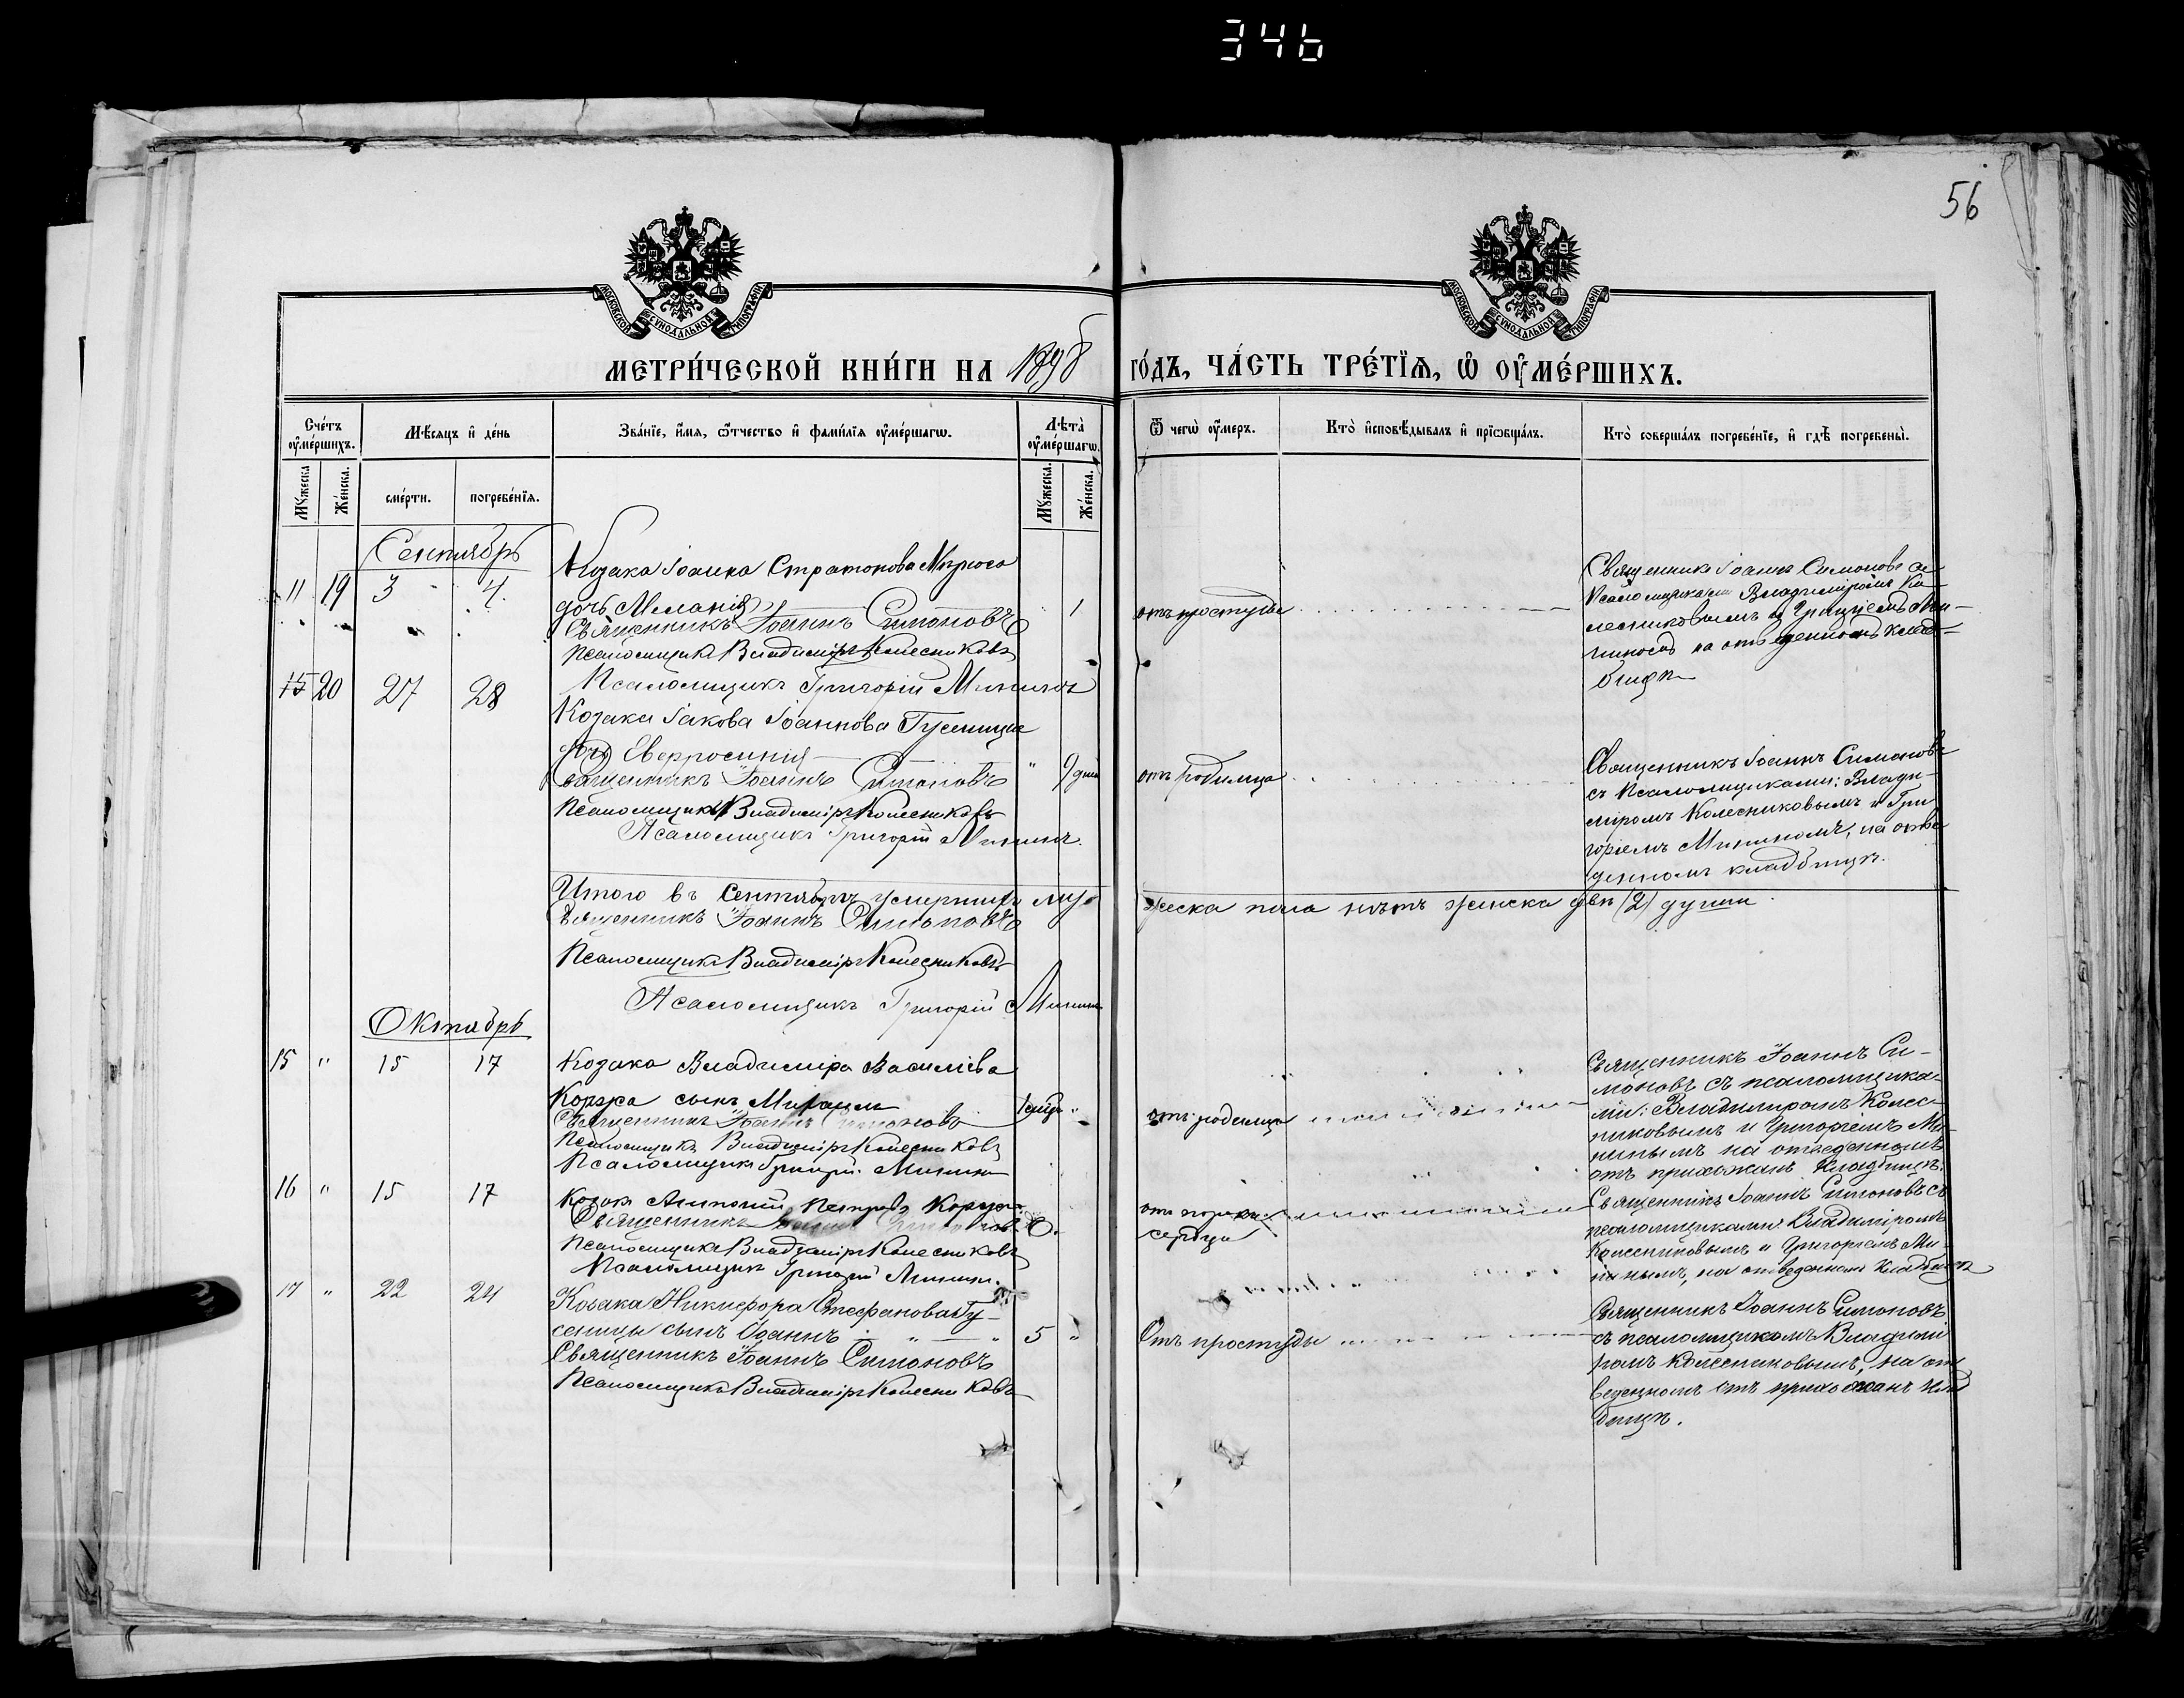 346
56
МОСКОВСКОЙ СУНОДАЛЬНОЙ ТИПОГРАФІИ
МОСКОВСКОЙ СУНОДАЛЬНОЙ ТИПОГРАФІИ
МЕТРИ́ЧЕСКОЙ КНИ́ГИ НА 1898 ГО́ДЪ, ЧА́СТЬ ТРЕ́ТЇѦ, Ѡ҆ ОУ҆МЕ́РШИХЪ.
Сче́тъ оу҆ме́ршихъ.
Мѣ́сяцъ и҆ де́нь
Зва́нїе, и҆́мя, ѻ҆́тчество и҆ фами́лїя оу҆ме́ршагѡ.
Лѣта̀ оу҆ме́ршагѡ.
Ѿ чегѡ̀ оу҆́меръ.
Кто̀ и҆сповѣ́дывалъ и҆ прїѡбща́лъ.
Кто̀ соверша́лъ погребе́нїе, и҆ гдѣ̀ погребены̀.
Му́жеска
Же́нска.
сме́рти.
погребе́нїя.
Му́жеска.
Же́нска.
Сентябрь
11 19 3 4
Козака Іоанна Стратонова
дочь Меланія 1
Священникъ Іоаннъ Симоновъ
Псаломщикъ Владиміръ Колесниковъ
Псаломщикъ Григорій Мининъ
отъ простуды
Священникъ Іоаннъ Симоновъ съ
Псаломщиками Владиміромъ Ко-
лесниковымъ и Григоріемъ Ми-
нинымъ на отведенномъ клад-
бищѣ
15 20 27 28
Козака Іакова Іоаннова Гусеницы
дочь Евфросинія
" 9 дней
Священникъ Іоаннъ Симоновъ
Псаломщикъ Владиміръ Колесниковъ
Псаломщикъ Григорій Мининъ.
отъ родимца
Священникъ Іоаннъ Симоновъ
съ Псаломщиками: Влади-
міромъ Колесниковымъ и Гри
горіемъ Мининомъ, на отве
денномъ кладбищѣ.
Итого въ Сентябрѣ умершихъ му-
жеска пола нѣтъ женска двѣ (2) души
Священникъ Іоаннъ Симоновъ
Псаломщикъ Владиміръ Колесниковъ
Псаломщикъ Григорій Мининъ
Октябрь
15 " 15 17
Козака Владиміра Василіева
Коржа сынъ Михаилъ
"
Священникъ Іоаннъ Симоновъ
Псаломщикъ Владиміръ Колесниковъ
Псаломщикъ Григорій Мининъ
отъ родимца
Священникъ Іоаннъ Си-
моновъ съ псаломщика-
ми: Владиміромъ Колес-
никовымъ и Григоріемъ Ми-
нинымъ на отведенномъ
отъ прихожанъ кладбищѣ.
16 " 15 17
Козакъ Антоній Петровъ Коржъ
Священникъ
Псаломщикъ Владиміръ Колесниковъ
Псаломщикъ Григорій Мининъ.
отъ порока
сердца
Священникъ Іоаннъ Симоновъ съ
псаломщиками: Владиміромъ
Колесниковымъ и Григоріемъ Ми-
нинымъ, на отведенномъ кладбищѣ
17 " 22 24
Козака Никифора Стефанова Гу-
сеницы сынъ Іоаннъ
5 "
Священникъ Іоаннъ Симоновъ
Псаломщикъ Владиміръ Колесниковъ
Отъ простуды
Священникъ Іоаннъ Симоновъ
съ псаломщикомъ Владимі
ромъ Колесниковымъ, на от
веденномъ отъ прихожанъ клад
бищѣ.